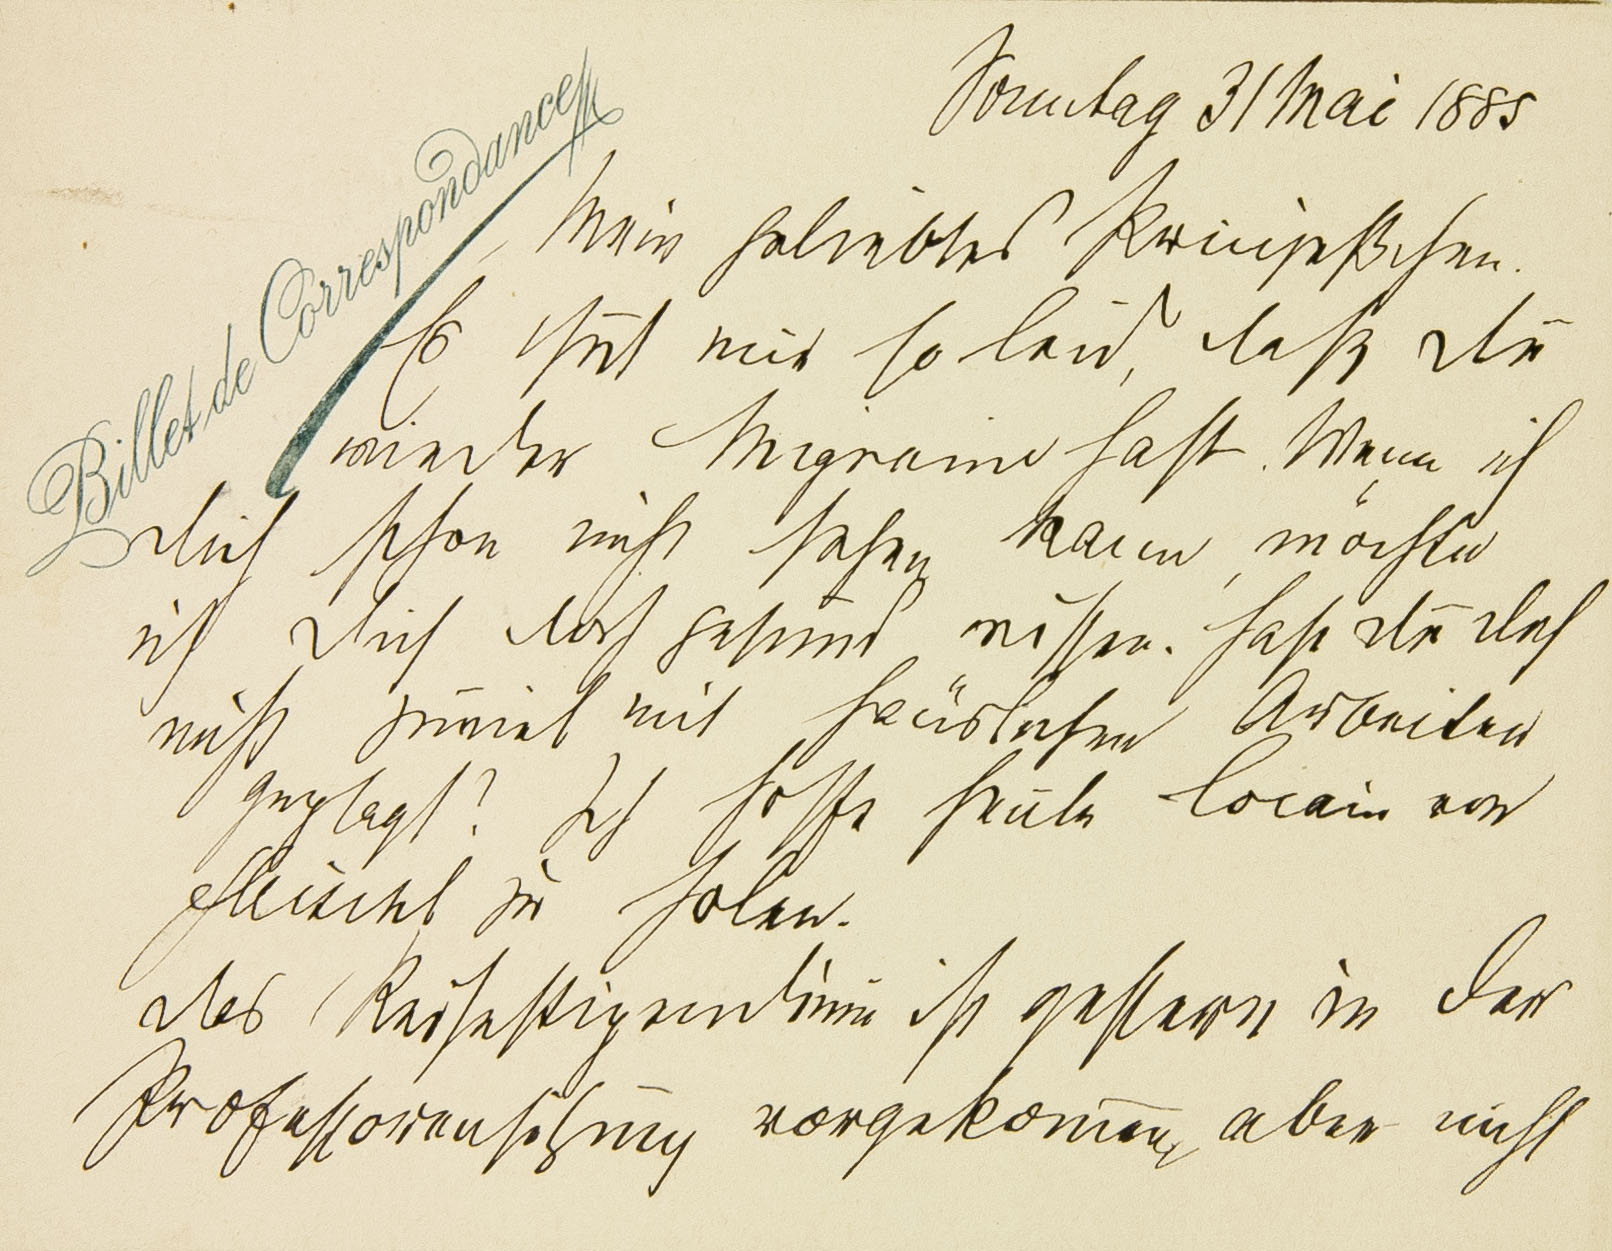 Billet de Correspondance
Sonntag 31 Mai 1885
Mein geliebtes Prinzeßchen.
Es thut mir so leid, daß Du
wieder Migraine hast. Wenn ich
Dich schon nicht sehen kann, möchte
ich Dich doch gesund wissen. Hast Du Dich
nicht zuviel mit häuslichen Arbeiten
geplagt? Ich hoffe heute Cocain von
Fleischl zu holen.
Das Reisestipendium ist gestern in der
Professorensitzung vorgekommen, aber nicht